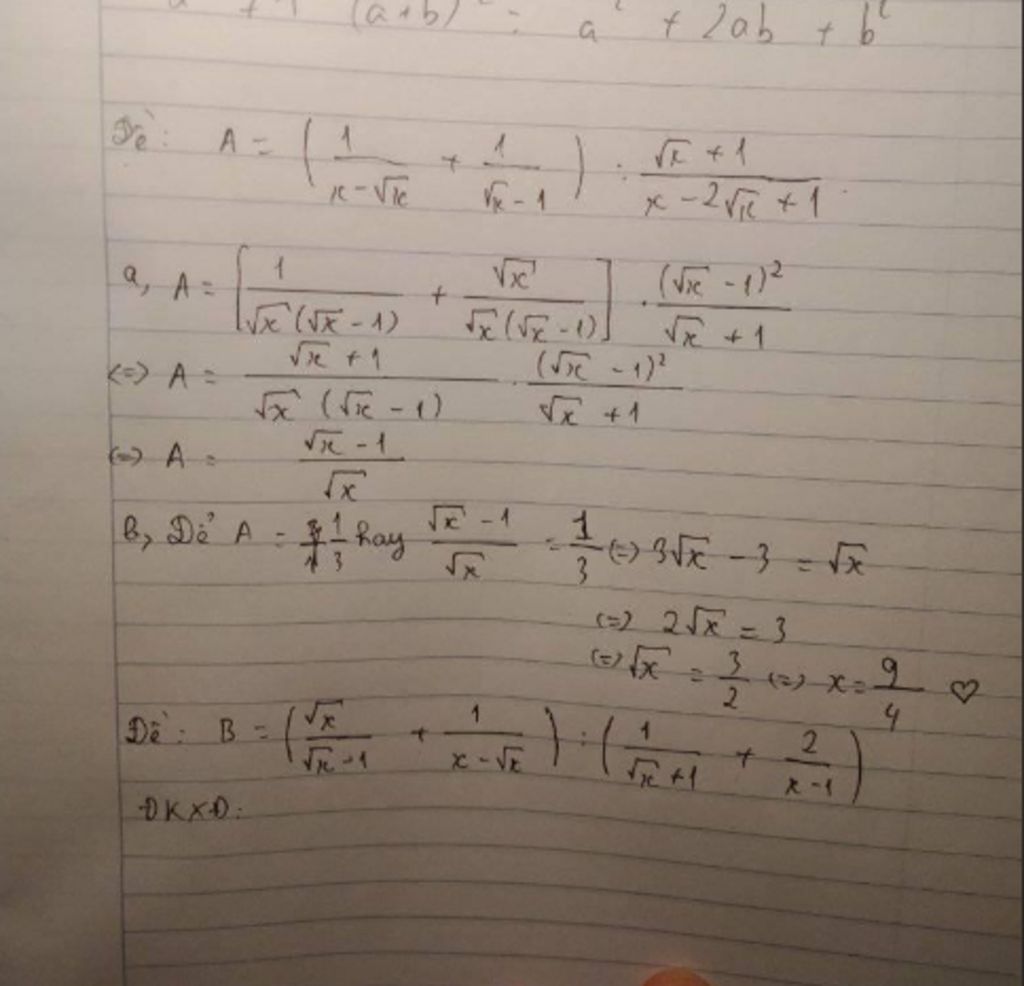 (a+b)² = a² + 2ab + b²
Đề: A = (1/(x-√x) + 1/(√x-1)) : (√x+1)/(x-2√x+1)
a, A = [1/(√x(√x-1)) + √x/(√x(√x-1))] . (√x-1)²/(√x+1)
<=> A = (√x+1)/(√x(√x-1)) . (√x-1)²/(√x+1)
<=> A = (√x-1)/√x
B, Để A = 1/3 hay (√x-1)/√x = 1/3 <=> 3√x - 3 = √x
<=> 2√x = 3
<=> √x = 3/2 <=> x = 9/4 ♡
Đề: B = (√x/(√x-1) + 1/(x-√x)) : (1/(√x+1) + 2/(x-1))
ĐKXĐ: